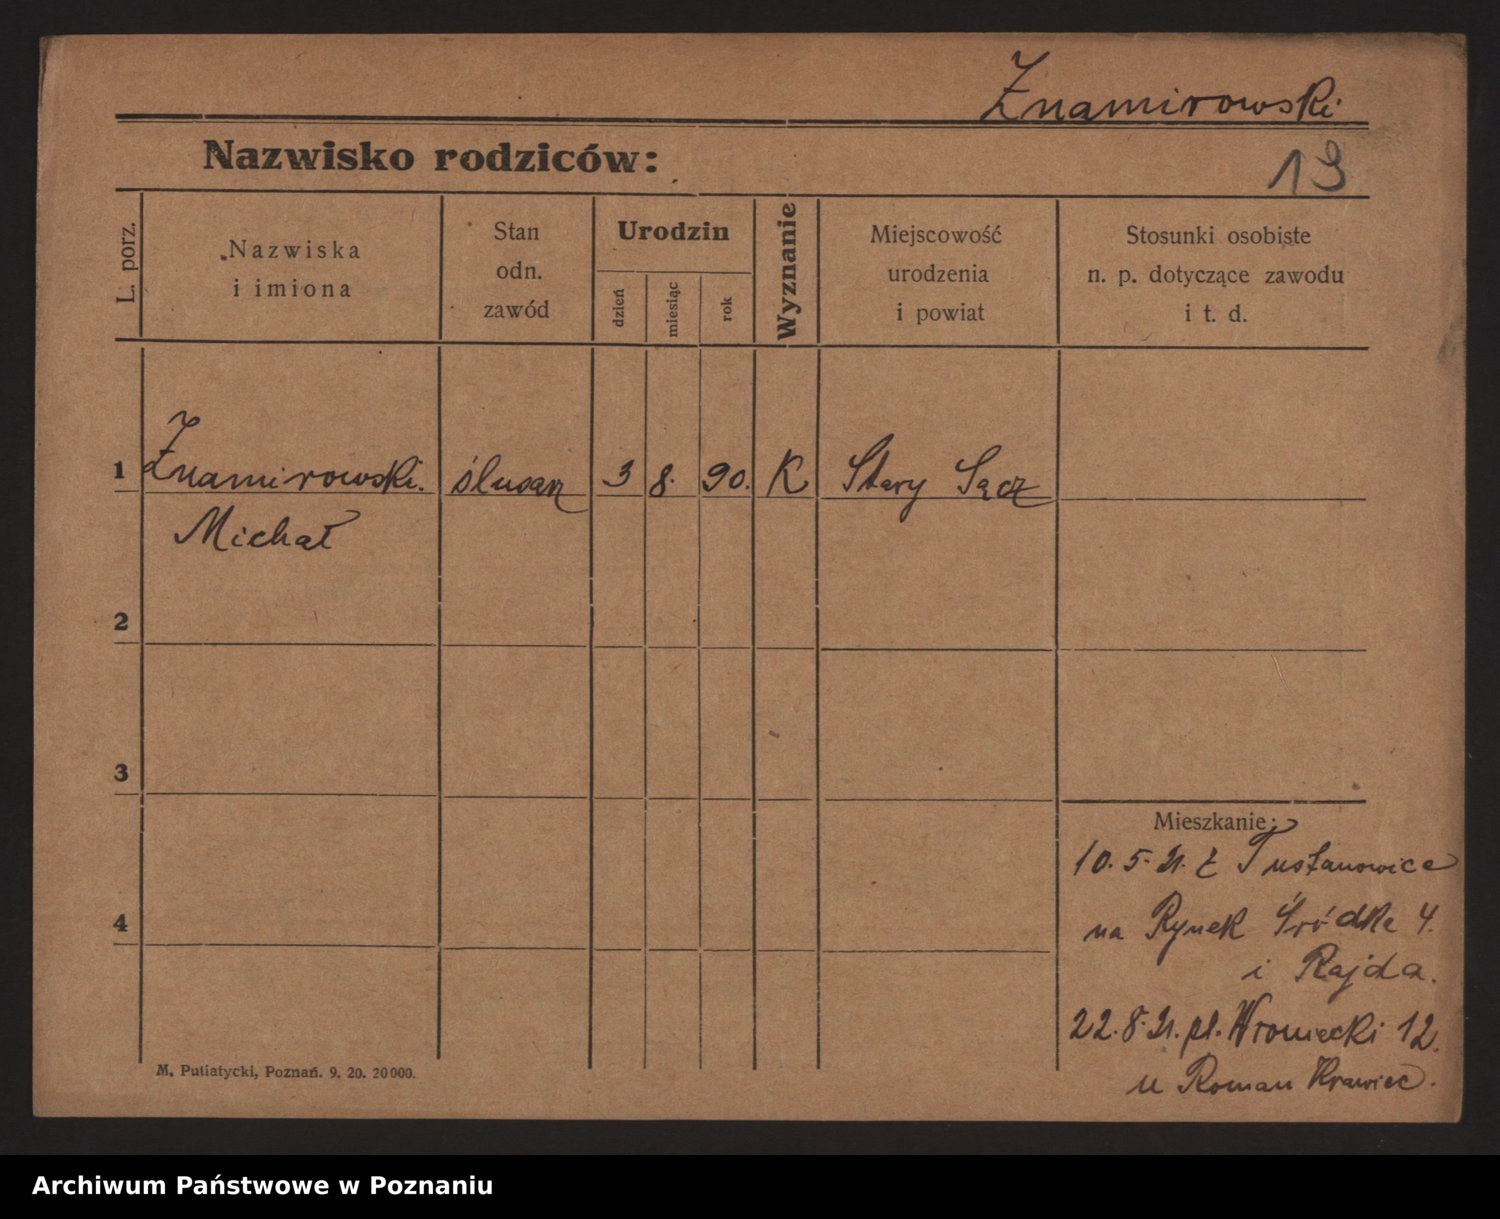 Znamirowski
Nazwisko rodziców:
19
L. porz.
Nazwiska
i imiona
Stan
odn.
zawód
Urodzin
dzień
miesiąc
rok
Wyznanie
Miejscowość
urodzenia
i powiat
Stosunki osobiste
n. p. dotyczące zawodu
i t. d.
1 Znamirowski. ślusarz 3 8. 90. K Stary Sącz
Michał
2
3
4
Mieszkanie:
10.5.21. z Tustanowice
na Rynek Śródke 4.
i Rajda.
22.8.21. pl. Wroniecki 12.
u Roman Krawiec.
M. Putiatycki, Poznań. 9. 20. 20000.
Archiwum Państwowe w Poznaniu